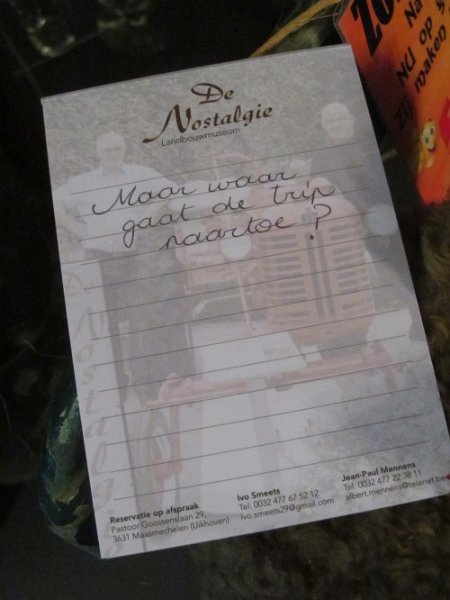 De
Nostalgie
Landbouwmuseum
Maar waar
gaat de trip
naartoe?
Reservatie op afspraak
Pastoor Goossenslaan 29,
3631 Maasmechelen (Uikhoven)
Ivo Smeets
Tel: 0032 477 67 52 12
ivo.smeets29@gmail.com
Jean-Paul Mennens
Tel: 0032 477 22 38 11
albert.mennens@telenet.be
Na
NU op s
maken